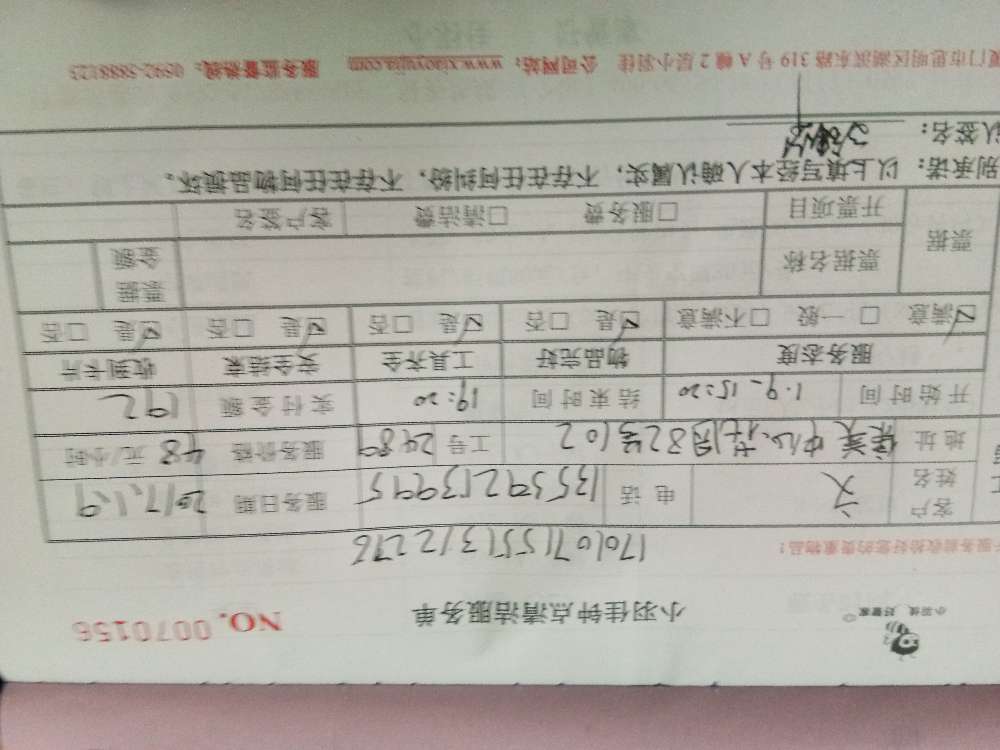 小羽佳 好管家
小羽佳钟点清洁服务单 NO. 0070156
服务前收拾好您的贵重物品!
17010715551312276
客户姓名 文 电话 13539213995 服务日期 2017.1.9
地址 花园82号102 工号 2489 服务价格 48 元/小时
开始时间 1.9-15:20 结束时间 19:20 实付金额 192
服务态度 物品完好 工具齐全 安全结束 收到卡片
☑满意 □一般 □不满意 ☑是 □否 ☑是 □否 ☑是 □否 ☑是 □否
票据 票据名称 票据金额
开票项目 □服务费 □清洁费 客户签名
别承诺:以上填写经本人确认属实,不存在任何纠纷,不存在任何物品损坏。
认签名:
厦门市思明区湖滨东路 319 号 A 幢 2 层小羽佳 公司网站:www.xiaoyujia.com 服务监督热线:0592-5888123